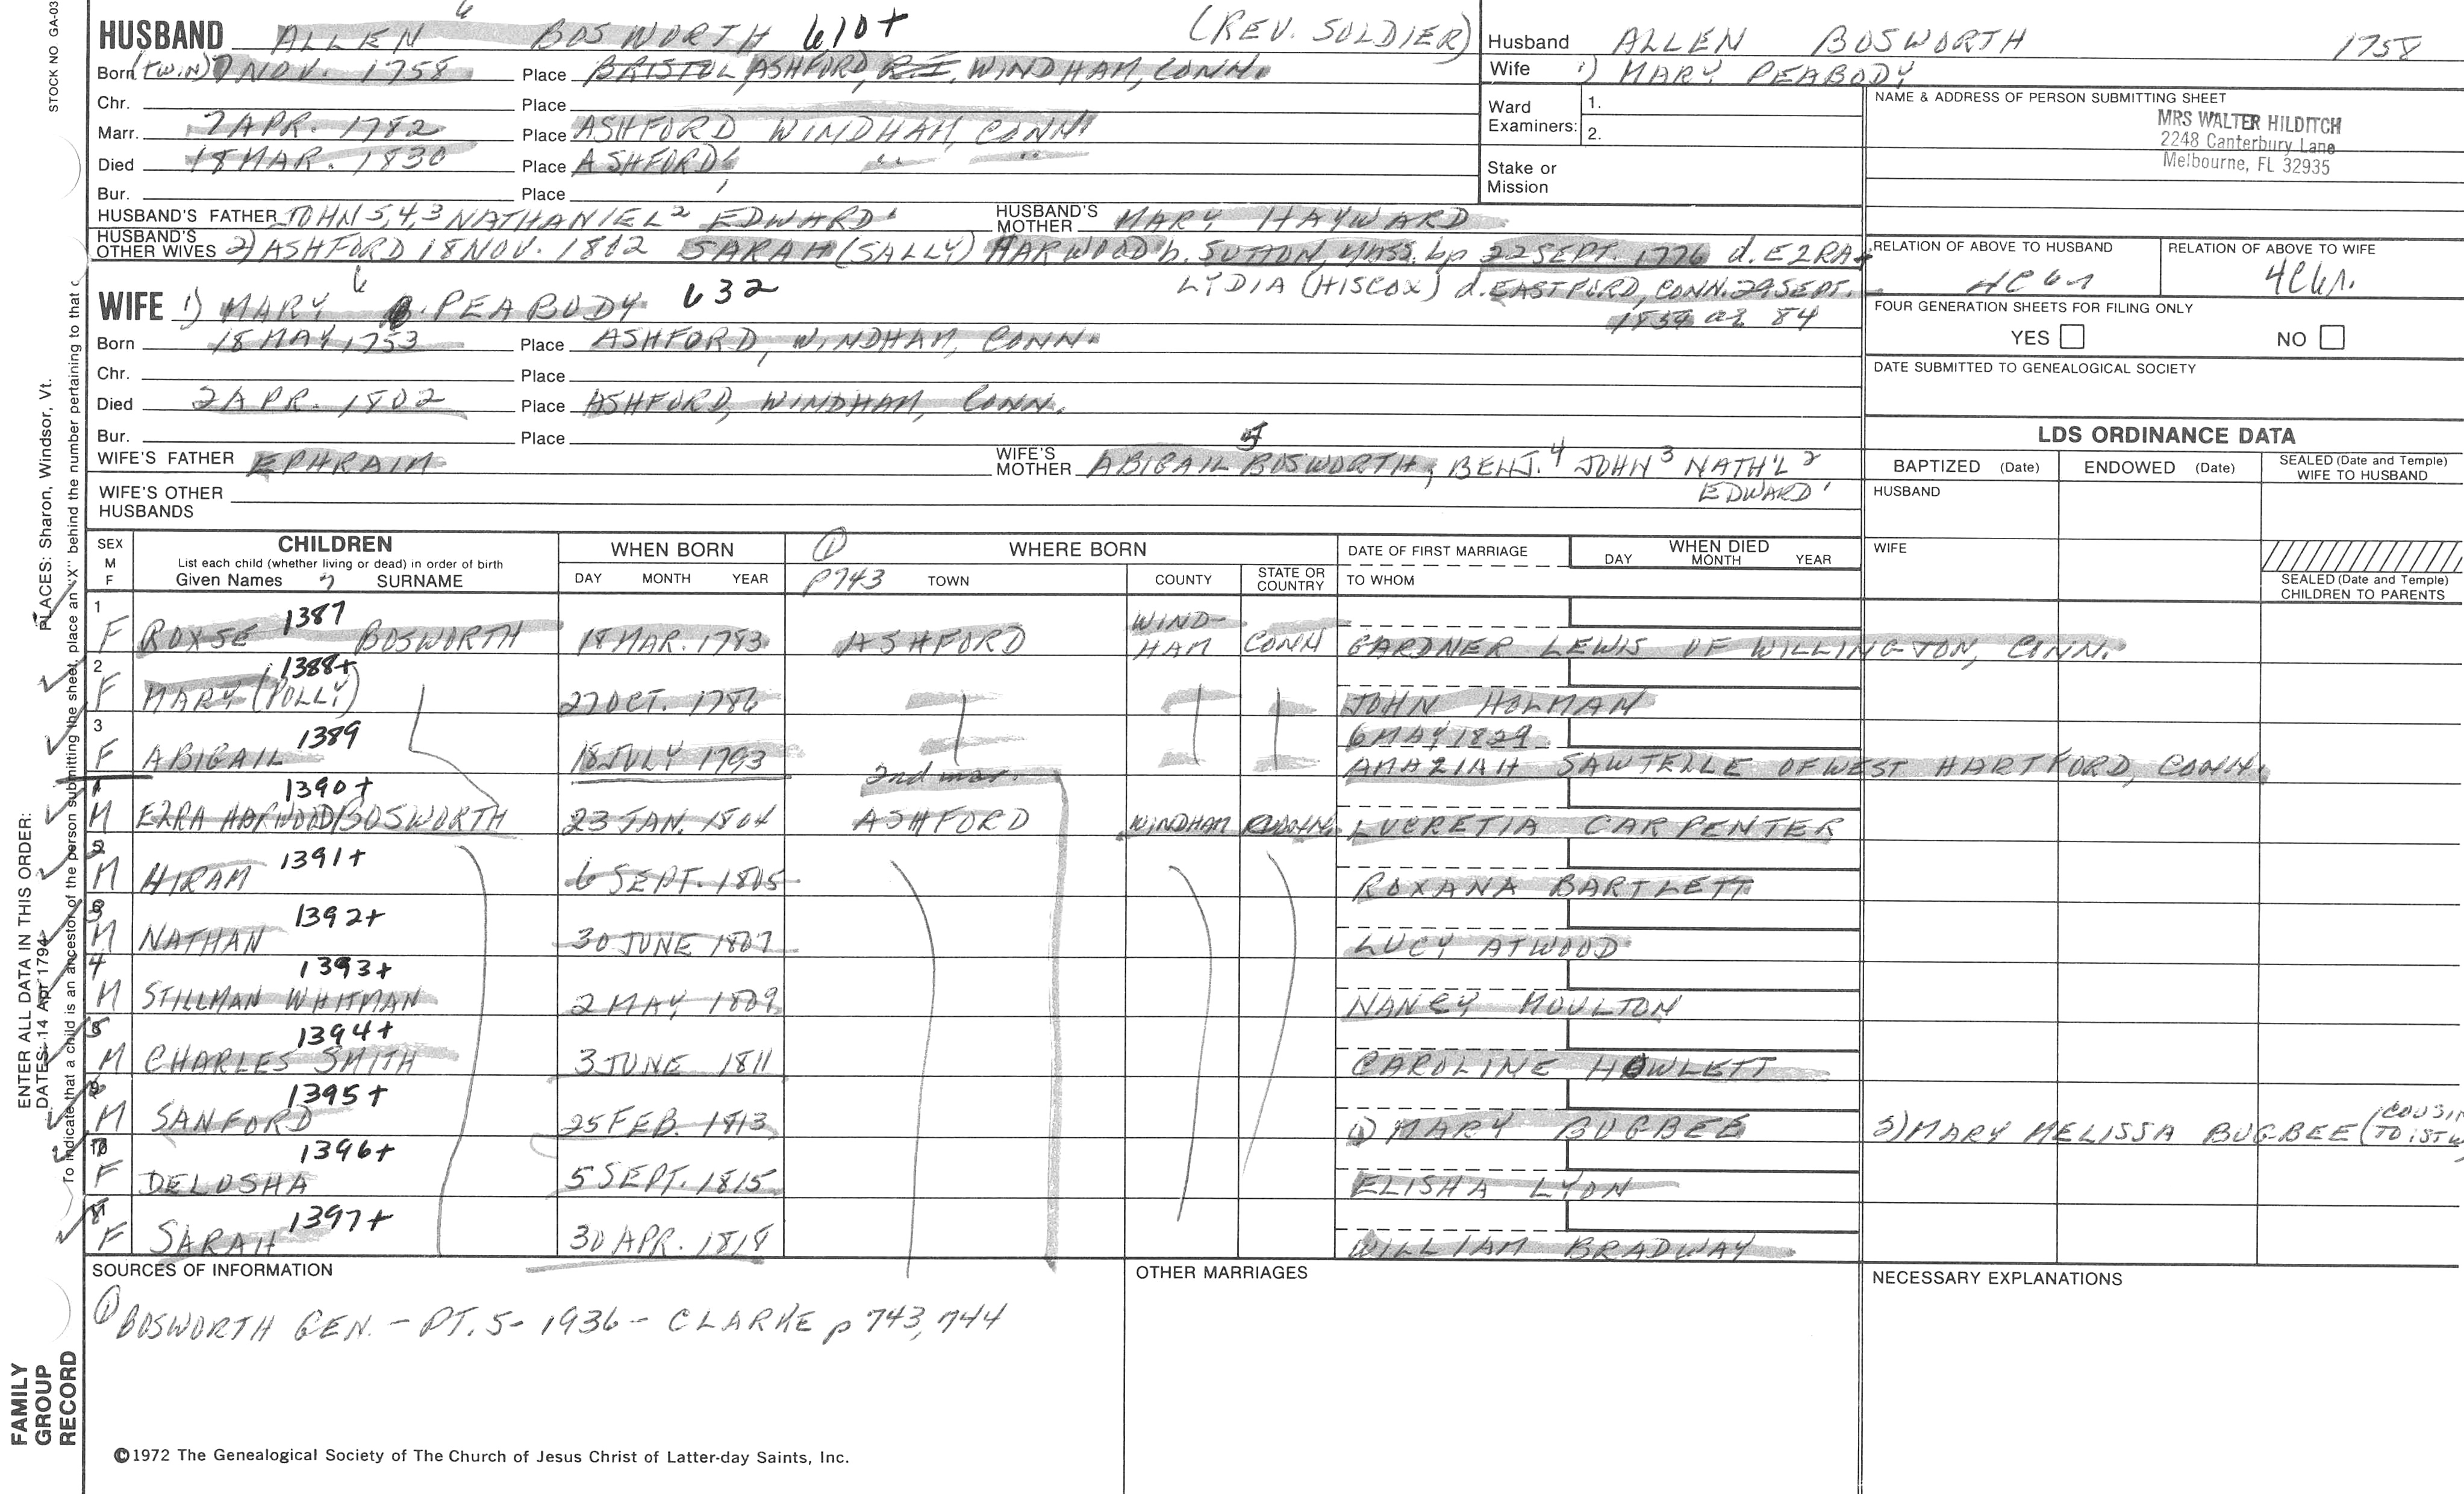 STOCK NO GA-03
HUSBAND ALLEN 6 BOSWORTH 610+ (REV. SOLDIER)
Born (TWIN) 7 NOV. 1758 Place BRISTOL ASHFORD, R.I. WINDHAM, CONN.
Chr. Place
Marr. 7 APR. 1782 Place ASHFORD WINDHAM, CONN.
Died 18 MAR. 1830 Place ASHFORD, " "
Bur. Place
HUSBAND'S FATHER JOHN 5,4,3 NATHANIEL 2 EDWARD 1 HUSBAND'S MOTHER MARY HAYWARD
HUSBAND'S OTHER WIVES 2) ASHFORD 18 NOV. 1802 SARAH (SALLY) HARWOOD b. SUTTON, MASS. bp 22 SEPT. 1776 d. EZRA +
LYDIA (HISCOX) d. EASTFORD, CONN. 29 SEPT.
1859 ae 84
WIFE 1) MARY 6 PEABODY 632
Born 18 MAY, 1753 Place ASHFORD, WINDHAM, CONN.
Chr. Place
Died 2 APR. 1802 Place ASHFORD, WINDHAM, CONN.
Bur. Place
WIFE'S FATHER EPHRAIM WIFE'S MOTHER ABIGAIL 5 BOSWORTH, BENJ. 4 JOHN 3 NATH'L 2
EDWARD 1
WIFE'S OTHER HUSBANDS
Husband ALLEN BOSWORTH 1758
Wife 1) MARY PEABODY
Ward Examiners: 1.
2.
Stake or Mission
NAME & ADDRESS OF PERSON SUBMITTING SHEET
MRS WALTER HILDITCH
2248 Canterbury Lane
Melbourne, FL 32935
RELATION OF ABOVE TO HUSBAND RELATION OF ABOVE TO WIFE
FOUR GENERATION SHEETS FOR FILING ONLY
YES NO
DATE SUBMITTED TO GENEALOGICAL SOCIETY
LDS ORDINANCE DATA
BAPTIZED (Date) ENDOWED (Date) SEALED (Date and Temple) WIFE TO HUSBAND
HUSBAND
WIFE
SEALED (Date and Temple) CHILDREN TO PARENTS
SEX M F CHILDREN
List each child (whether living or dead) in order of birth
Given Names 7 SURNAME
WHEN BORN
DAY MONTH YEAR
① p743 WHERE BORN
TOWN COUNTY STATE OR COUNTRY
DATE OF FIRST MARRIAGE
TO WHOM
WHEN DIED
DAY MONTH YEAR
1 F ROXSE 1387 BOSWORTH 18 MAR. 1783 ASHFORD WIND-HAM CONN GARDNER LEWIS OF WILLINGTON, CONN.
2 F MARY (POLLY) 1388+ 27 OCT. 1786 JOHN HOLMAN
3 F ABIGAIL 1389 18 JULY 1793 6 MAY 1829 AMAZIAH SAWTELLE OF WEST HARTFORD, CONN.
2nd mar.
1 M EZRA HARWOOD BOSWORTH 1390+ 23 JAN. 1804 ASHFORD WINDHAM CONN. LUCRETIA CARPENTER
2 M HIRAM 1391+ 6 SEPT. 1805 ROXANA BARTLETT
3 M NATHAN 1392+ 30 JUNE 1807 LUCY ATWOOD
4 M STILLMAN WHITMAN 1393+ 2 MAY 1809 NANCY MOULTON
5 M CHARLES SMITH 1394+ 3 JUNE 1811 CAROLINE HOWLETT
M SANFORD 1395+ 25 FEB. 1813 1) MARY BUGBEE 2) MARY MELISSA BUGBEE (COUSIN TO 1ST W
F DELOSHA 1396+ 5 SEPT. 1815 ELISHA LYON
8 F SARAH 1397+ 30 APR. 1818 WILLIAM BRADWAY
SOURCES OF INFORMATION
① BOSWORTH GEN. - PT. 5 - 1936 - CLARKE p 743, 744
OTHER MARRIAGES
NECESSARY EXPLANATIONS
©1972 The Genealogical Society of The Church of Jesus Christ of Latter-day Saints, Inc.
FAMILY GROUP RECORD
ENTER ALL DATA IN THIS ORDER:
DATES: 14 Apr 1794
PLACES: Sharon, Windsor, Vt.
To indicate that a child is an ancestor of the person submitting the sheet, place an "X" behind the number pertaining to that c